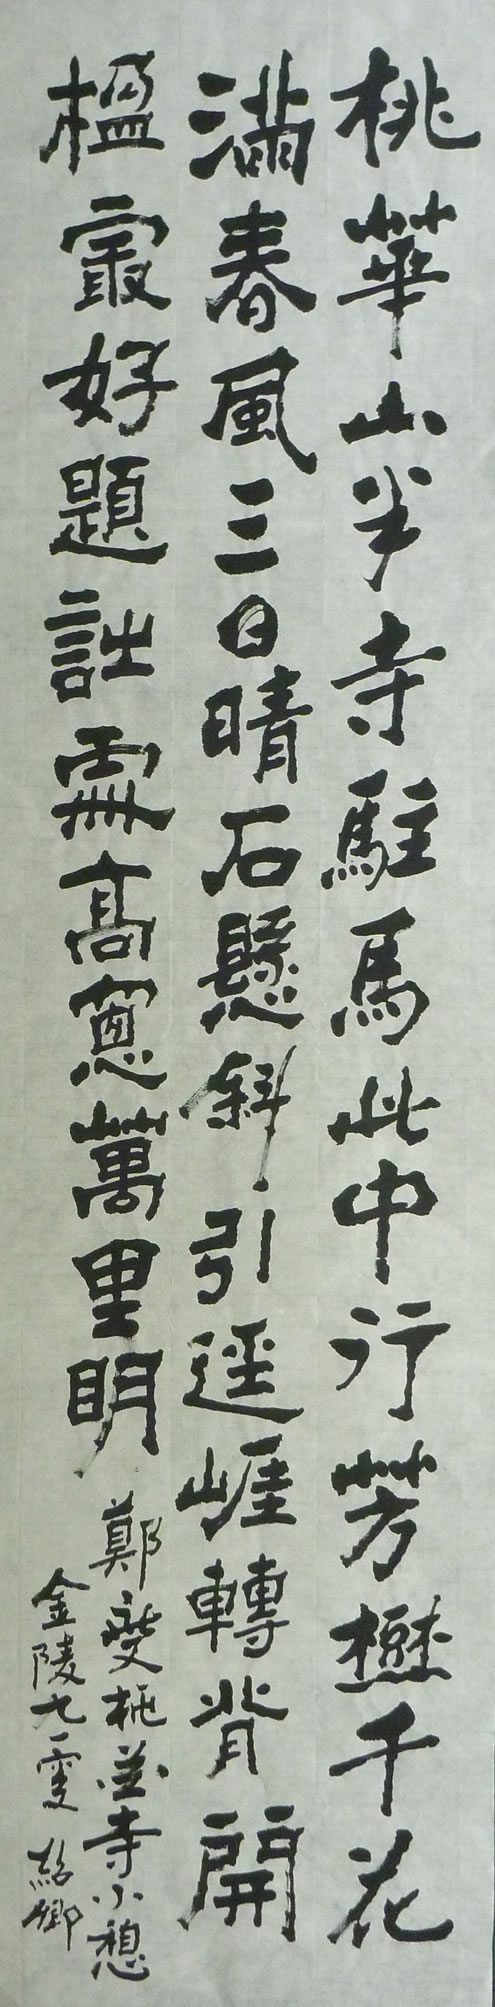 桃華山半寺駐馬此中行芳樹千花
滿春風三日晴石懸斜引逕崕轉背開
楹寂好題詩處高窻萬里明
鄭燮桃花寺小憩
金陵九雯 紹卿